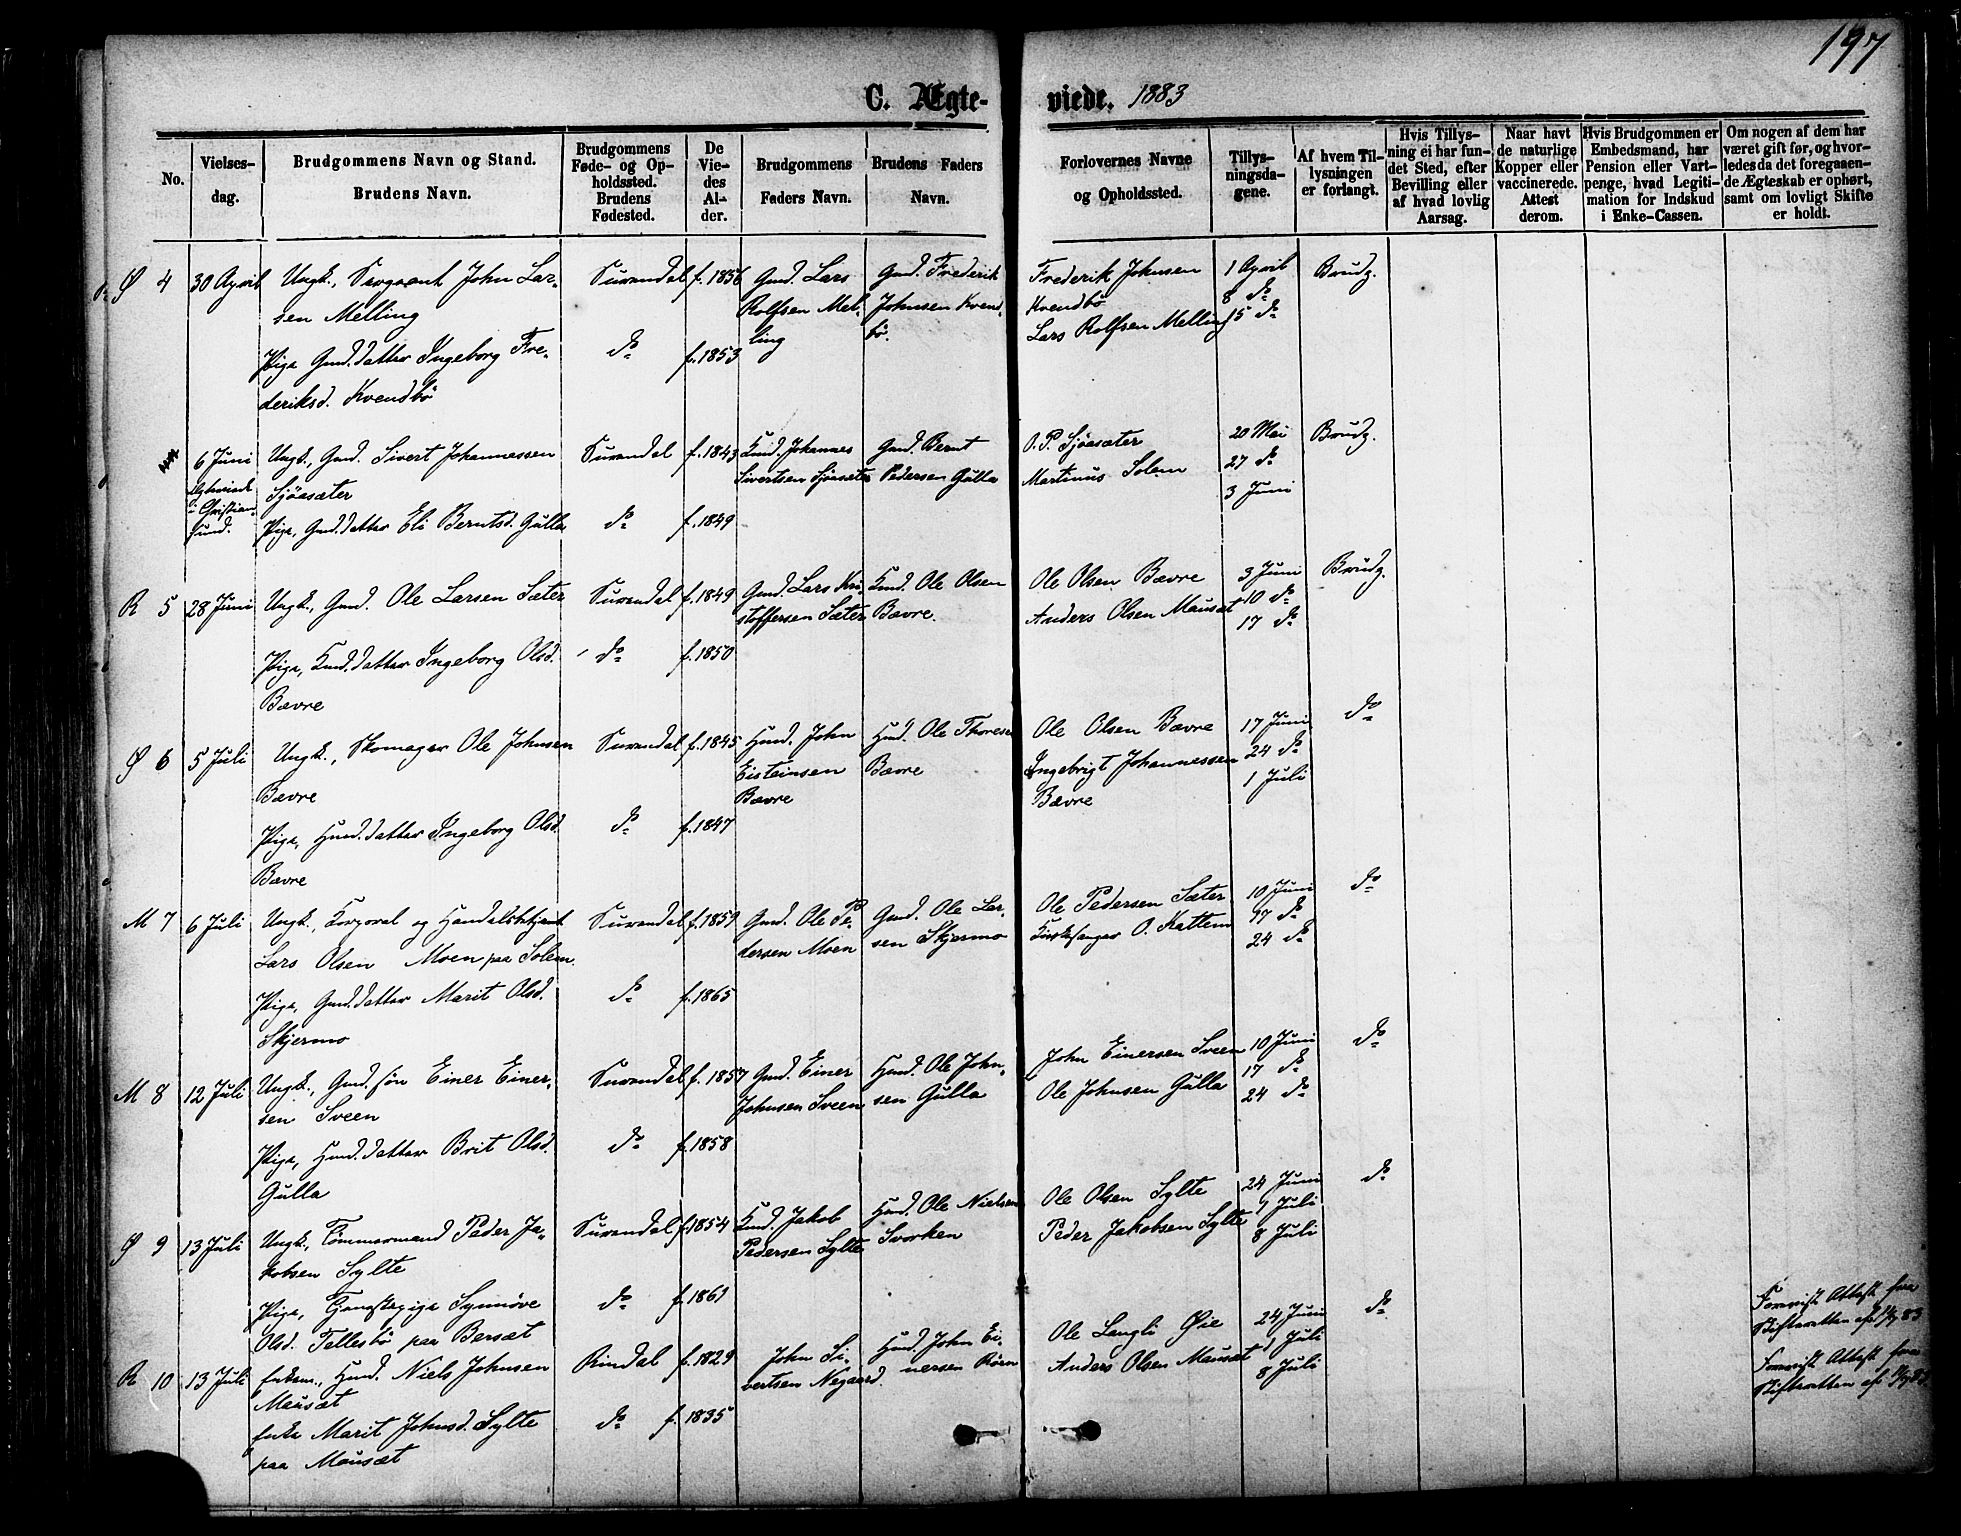 197
C. Ægte-
viede. 1883
No.
Vielses-
dag.
Brudgommens Navn og Stand.
Brudens Navn.
Brudgommens
Føde- og Op-
holdssted.
Brudens
Fødested.
De
Vie-
des
Al-
der.
Brudgommens
Faders Navn.
Brudens Faders
Navn.
Forlovernes Navne
og Opholdssted.
Tillys-
ningsda-
gene.
Af hvem Til-
lysningen
er forlangt.
Hvis Tillys-
ning ei har fun-
det Sted, efter
Bevilling eller
af hvad lovlig
Aarsag.
Naar havt
de naturlige
Kopper eller
vaccinerede.
Attest
derom.
Hvis Brudgommen er
Embedsmand, har
Pension eller Vart-
penge, hvad Legiti-
mation for Indskud
i Enke-Cassen.
Om nogen af dem har
været gift før, og hvor-
ledes da det foregaaen-
de Ægteskab er ophørt,
samt om lovligt Skifte
er holdt.
Ø 4
30 April
Ungk., Sergeant John Lar-
sen Melling
Pige Gmd.datter Ingeborg Fre-
deriksd. Kvendbö
Surendal
do
f. 1856
f. 1853
Gmd. Lars
Rolfsen Mel-
ling
Gmd. Frederik
Johnsen Kvend-
bö.
Frederik Johnsen
Kvendbö
Lars Rolfsen Melling
1 April
8 do
15 do
Brudg.
6 Juni
i Christian-
sund.
Ungk., Gmd. Sivert Johannessen
Sjöasæter
Pige, Gmd.datter Eli Berntsd. Gulla
Surendal
do
f. 1843
f. 1849
Kmd. Johannes
Sivertsen Sjöasæter
Gmd. Bernt
Pedersen Gulla
O. P. Sjöasæter
Martinus Solem
20 Mai
27 do
3 Juni
Brudg.
R 5
28 Juni
Ungk., Gmd. Ole Larsen Sæter
Pige, Kmd.datter Ingeborg Olsd.
Bævre
Surendal
do
f. 1849
f. 1850
Gmd. Lars Kri-
stoffersen Sæter
Kmd. Ole Olsen
Bævre.
Ole Olsen Bævre
Anders Olsen Mausæt
3 Juni
10 do
17 do
Brudg.
Ø 6
5 Juli
Ungk., Skomager Ole Johnsen
Bævre
Pige, Hmd.datter Ingeborg Olsd.
Bævre
Surendal
do
f. 1845
f. 1847
Hmd. John
Eisteinsen
Bævre
Hmd. Ole Thoresen
Bævre
Ole Olsen Bævre
Ingebrigt Johannessen
Bævre
17 Juni
24 do
1 Juli
do
M 7
6 Juli
Ungk., Korporal og Handelsbetjent
Lars Olsen Moen paa Solem.
Pige, Gmd.datter Marit Olsd.
Skjermo
Surendal
do
f. 1859
f. 1865
Gmd. Ole Pe-
dersen Moen
Gmd. Ole Lar-
sen Skjermo
Ole Pedersen Sæter
Kirkesanger O. Kattem
10 Juni
17 do
24 do
do
M 8
12 Juli
Ungk., Gmd.søn Einer Einer-
sen Sveen
Pige, Hmd.datter Brit Olsd.
Gulla
Surendal
do
f. 1857
f. 1858
Gmd. Einer
Johnsen Sveen
Hmd. Ole John-
sen Gulla
John Einersen Sveen
Ole Johnsen Gulla
10 Juni
17 do
24 do
do
Ø 9
13 Juli
Ungk., Tömmermand Peder Ja-
kobsen Sylte
Pige, Tjenestepige Synnöve
Olsd. Tellesbö paa Bersæt
Surendal
do
f. 1854
f. 1861
Kmd. Jakob
Pedersen Sylte
Hmd. Ole Nielsen
Svorken
Ole Olsen Sylte
Peder Jakobsen Sylte
24 Juni
1 Juli
8 Juli
do
R 10
13 Juli
Enkem., Hmd. Niels Johnsen
Mausæt
Enke Marit Johnsd. Sylte
paa Mausæt
Rindal
do
f. 1829
f. 1835
John Si-
vertsen Negaard.
Hmd. John Ei-
nersen Rörn
Ole Langli Øie
Anders Olsen Mausæt
24 Juni
1 Juli
8 Juli
do
Forevist Attest fra
Skifteretten af
Forevist Attest fra
Skifteretten af